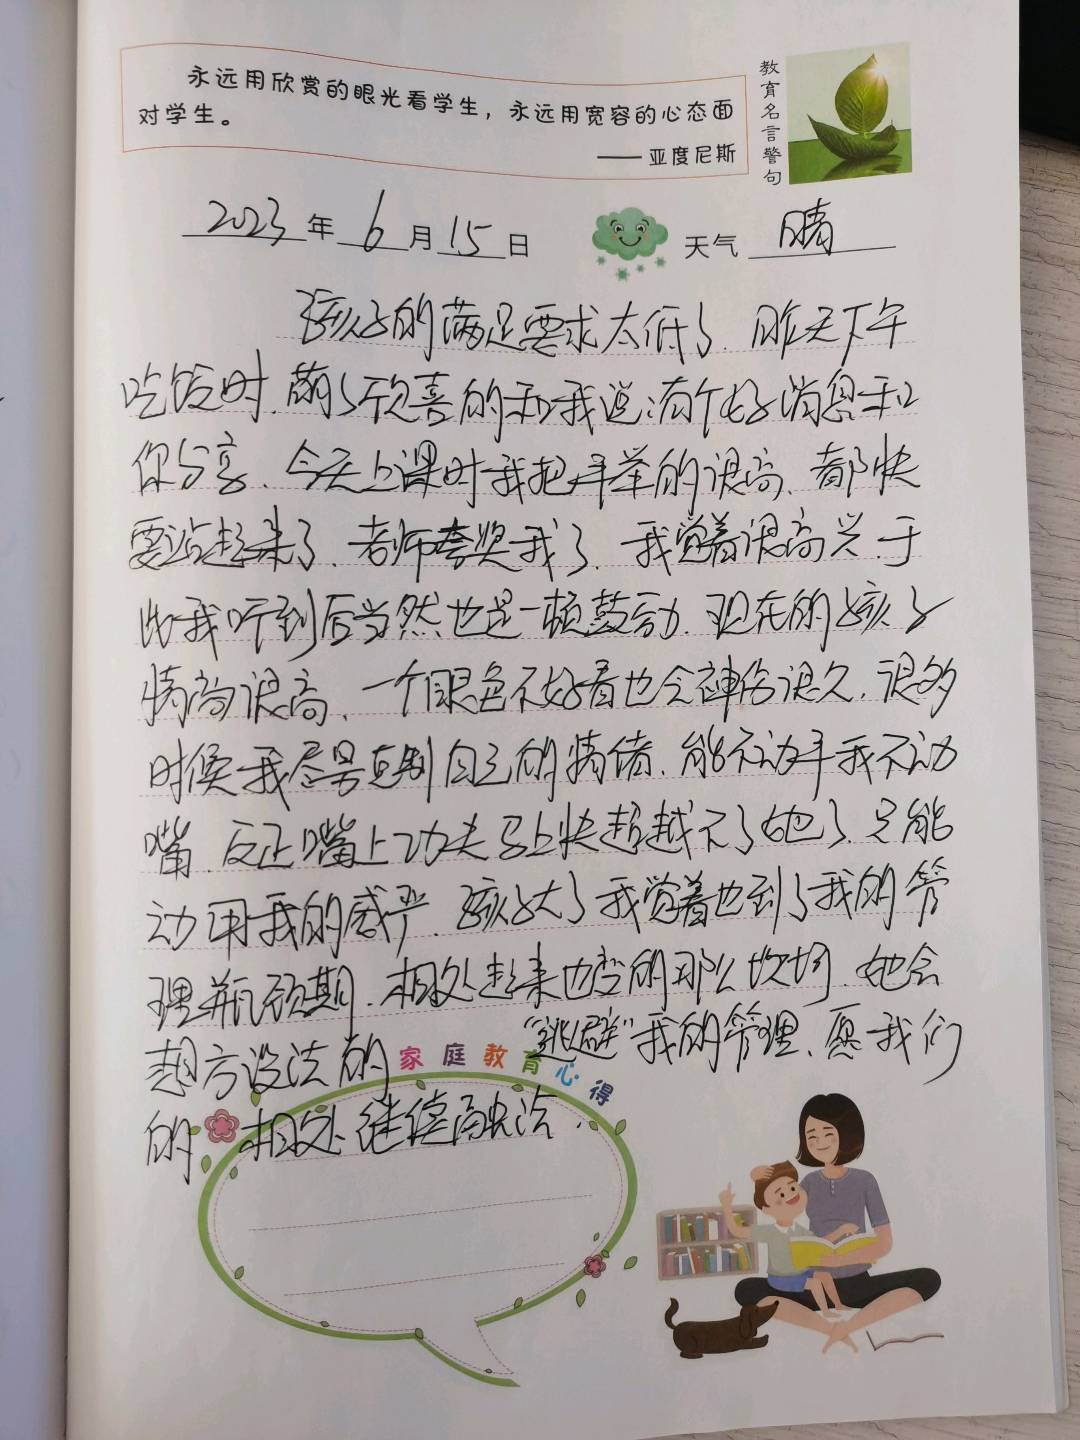 永远用欣赏的眼光看学生，永远用宽容的心态面
对学生。
——亚度尼斯
教育名言警句
2023年6月15日 天气 晴
孩子的满足要求太低了、昨天下午
吃饭时、萌萌欣喜的和我说：有个好消息和
你分享、今天上课时我把手举的很高、都快
要站起来了、老师夸奖我了、我觉着很高兴、于
此我听到后当然也是一顿鼓动、现在的孩子
情商很高、一个眼色不好看也会神伤很久、很多
时候我尽量克制自己的情绪、能不动手我不动
嘴、反正嘴上功夫马上快超越不了她了、只能
动用我的威严、孩子大了我觉着也到了我的管
理瓶颈期、相处起来也变的那么坎坷、她会
想方设法的“逃避”我的管理、愿我们
家庭教育心得
的相处继续融洽.